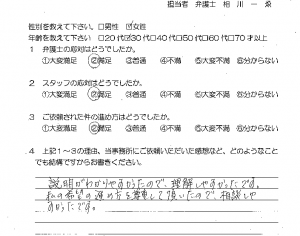 担当者 弁護士 相川一
性別を教えて下さい。□男性 ☑女性
年齢を教えて下さい □20代☑30代□40代□50代□60代□70才以上
1 弁護士の応対はどうでしたか。
①大変満足 ②満足 ③普通 ④不満 ⑤大変不満 ⑥分からない
2 スタッフの応対はどうでしたか。
①大変満足 ②満足 ③普通 ④不満 ⑤大変不満 ⑥分からない
3 ご依頼された件の進め方はどうでしたか。
①大変満足 ②満足 ③普通 ④不満 ⑤大変不満 ⑥分からない
4 上記1~3の理由、当事務所にご依頼いただいた感想など、どのようなこと
でも結構ですからお書きください。
説明がわかりやすかったので、理解しやすかったです。
私の希望の進め方を尊重して頂いたので、相談しや
すかったです。